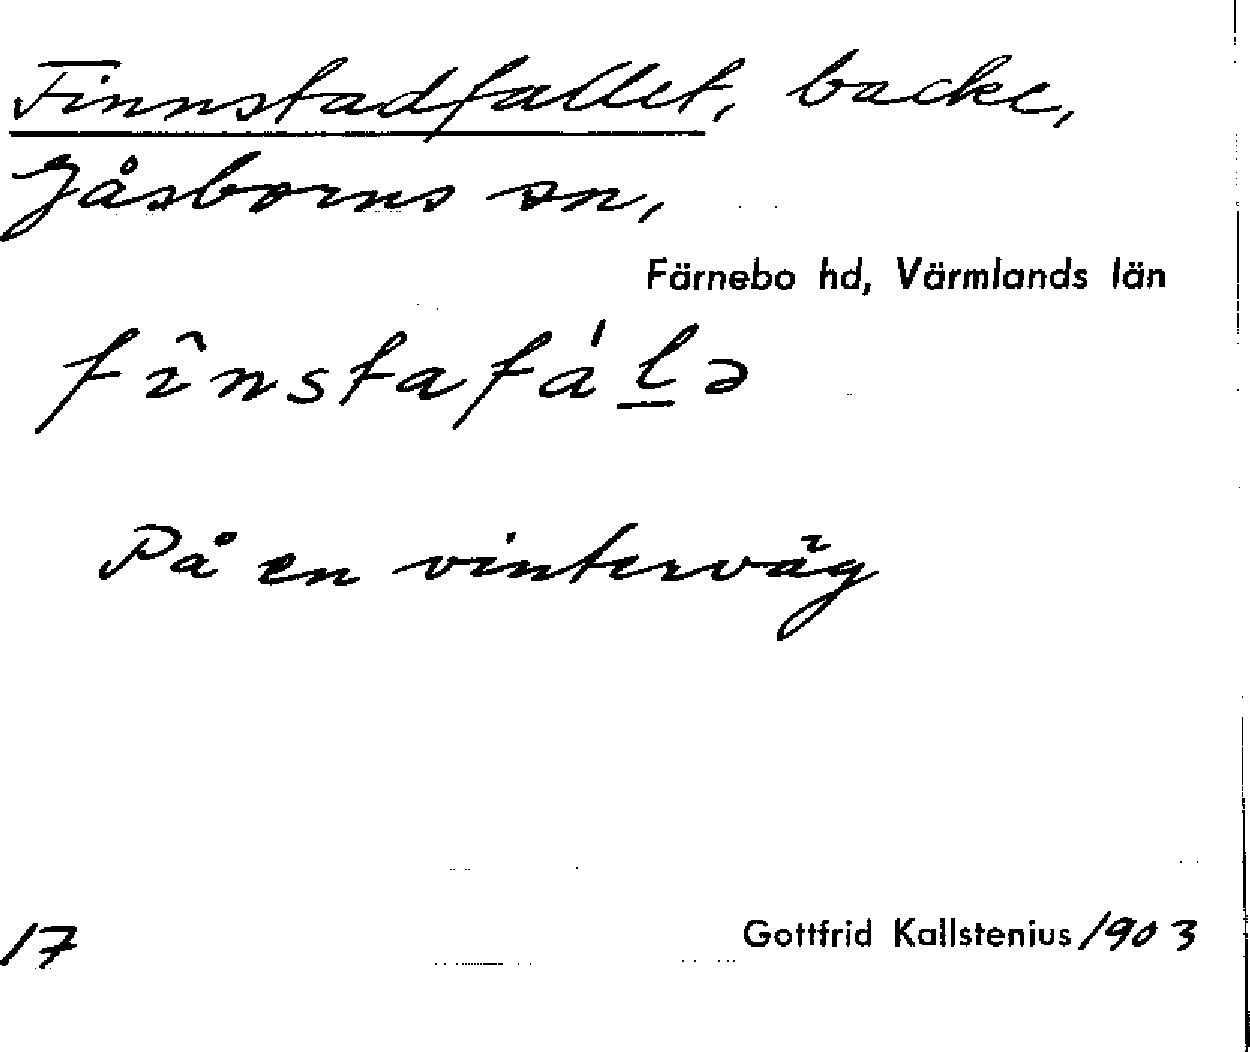 Finnstadfallet, backe,
Gåsborns sn,
Färnebo hd, Värmlands län
fı̂nstafáḻə
På en vinterväg
17
Gottfrid Kallstenius 1903